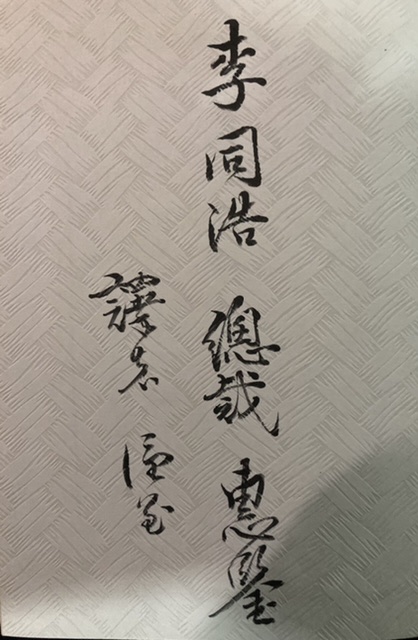 李同浩 總裁 惠鑒
譯者 謹呈